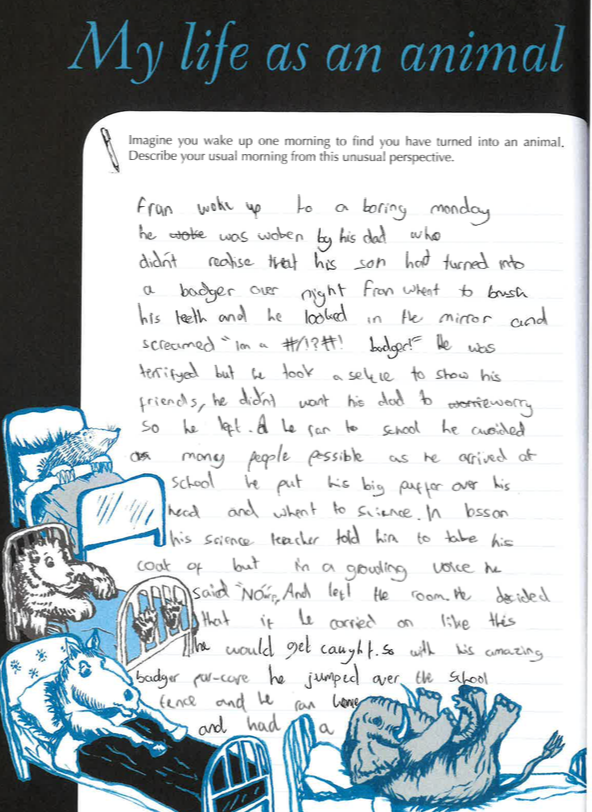 My life as an animal
Imagine you wake up one morning to find you have turned into an animal.
Describe your usual morning from this unusual perspective.
Fran woke up to a boring monday
he woke was woken by his dad who
didnt realise that his son had turned into
a badger over night Fran whent to brush
his teeth and he looked in the mirror and
screamed "im a #/!?#! badger!" He was
terrifyed but he took a selfie to show his
friends, he didnt want his dad to worrie worry
so he left. he ran to school he avoided
as many people possible as he arrived at
school he put his big puffer over his
head and whent to science. In lesson
his science teacher told him to take his
coat of but in a growling voice he
said "No" And left the room. He decided
that if he carried on like this
he would get caught. So with his amazing
badger par-core he jumped over the school
fence and he ran home
and had a